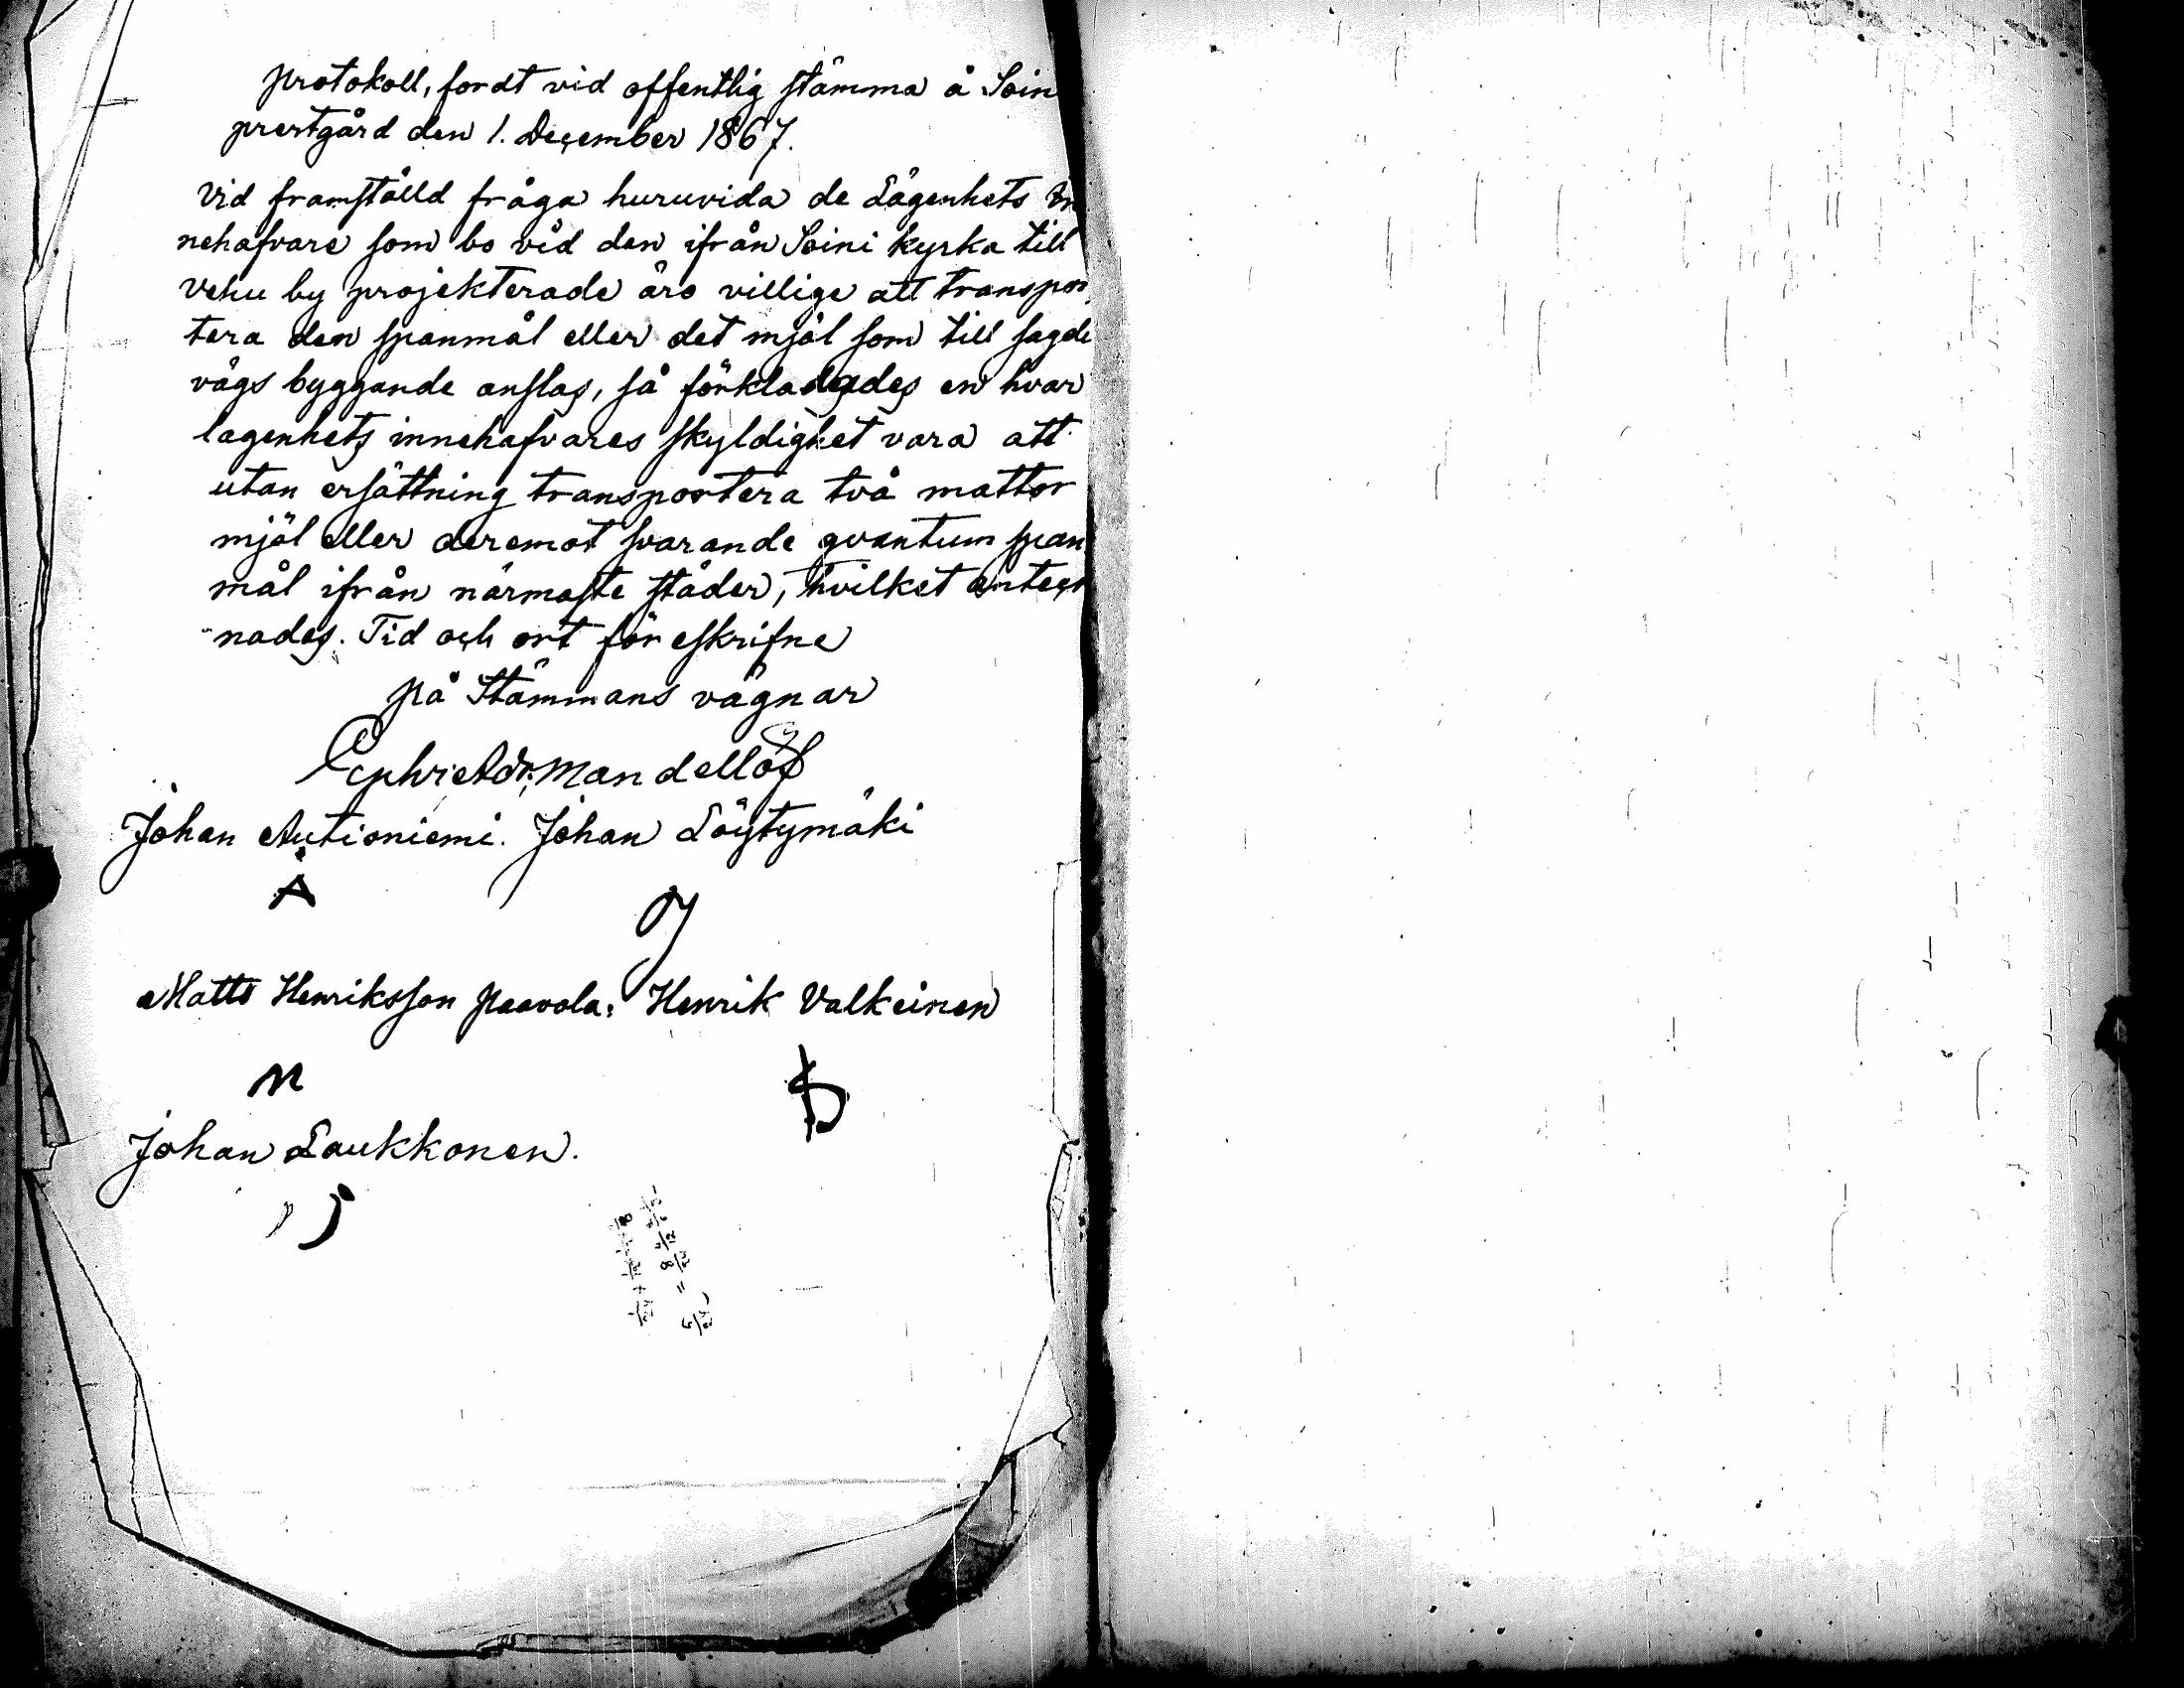 protokoll, fordt vid offentlig stämma å Soin
prestgård den 1. December 1867.
Vid framställd fråga huruvida de Lägenhets in
nehafvare som bo vid den ifrån Soini kyrka till
Vehu by projekterade äro villige att transpor
tera den spanmål eller det mjöl som till sagde
vägs byggande anslas, så förklarades en hvar
lagenhets innehafvares skyldighet vara att
utan ersättning transportera två mattor
mjöl eller deremot svarande qvantum span
mål ifrån närmaste städer, hvilket anteck
nades. Tid och ort för eskrifne
på Stämmans vägnar
Mandellöf
Johan Autioniemi. Johan Löytymäki
A
Matts Henriksson Paavola. Henrik Valkeinen
M
Johan Laukkonen.
J